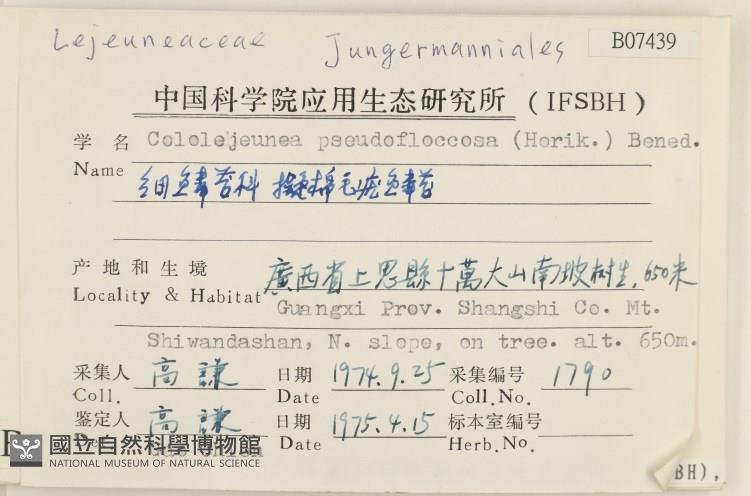 Lejeuneaceae Jungermanniales B07439
中国科学院应用生态研究所 (IFSBH)
学 名 Cololejeunea pseudofloccosa (Horik.) Bened.
Name 细鱼鳞苔科 擬棉毛疣鱼鳞苔
产 地 和 生 境 廣西省上思縣十萬大山南坡樹生, 650米
Locality & Habitat Guangxi Prov. Shangshi Co. Mt.
Shiwandashan, N. slope, on tree. alt. 650m.
采集人 高謙 日期 1974.9.25 采集编号 1790
Coll. Date Coll.No.
鉴定人 高謙 日期 1975.4.15 标本室编号
Date Herb.No.
國立自然科學博物館
NATIONAL MUSEUM OF NATURAL SCIENCE
BH),